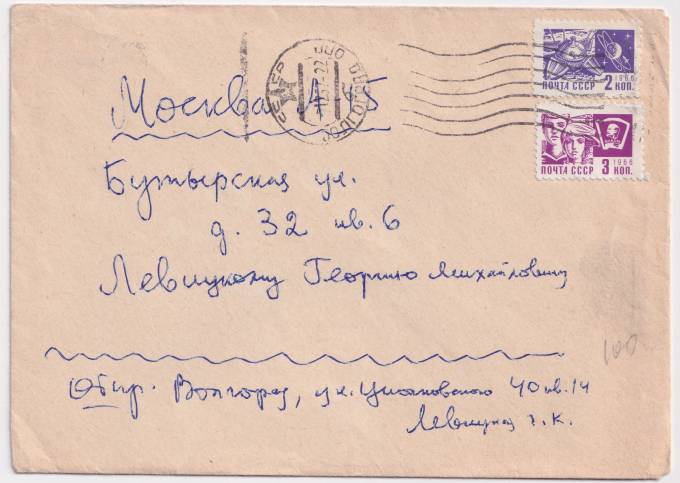 Москва А-5
Бутырская ул.
д. 32 кв. 6
Левицкому Георгию Михайловичу
Отпр. Волгоград, ул. Циолковского 40 кв. 14
Левицкая Г. К.
1966
ПОЧТА СССР 2 КОП.
1966
ПОЧТА СССР 3 КОП.
100